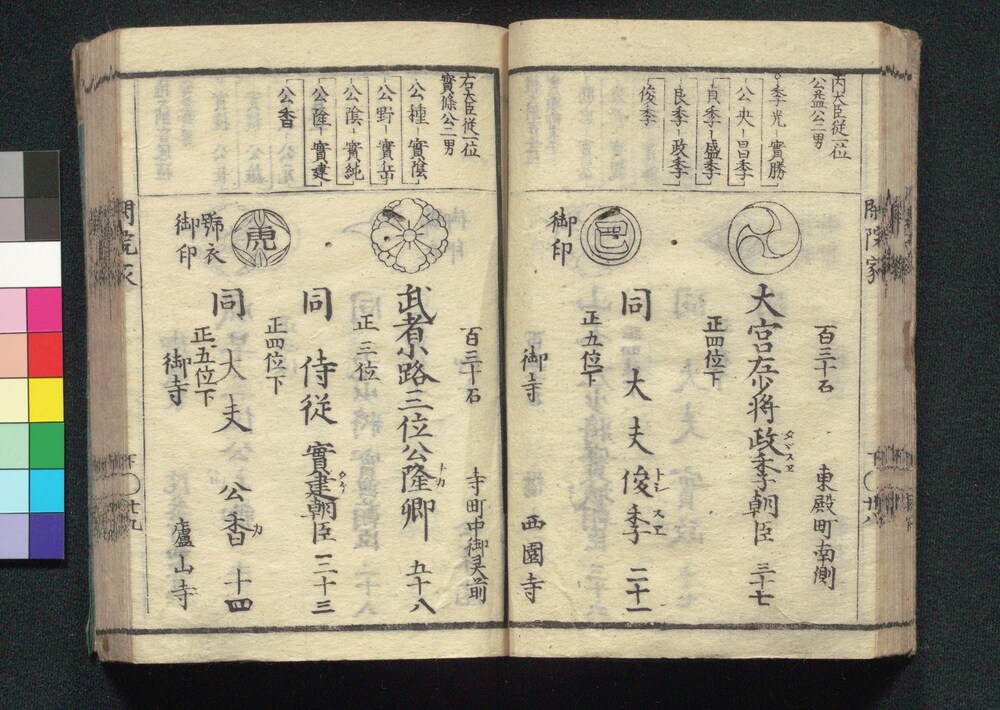 閑院家
内大臣従一位
公益公二男
季光 實勝
公央 昌季
貞季 盛季
良季 政季
俊季
百三十石
東殿町南側
大宮左少将政季朝臣 三十七
タヾスヱ
正四位下
同 大夫 俊季 二十一
トシ スヱ
正五位下
御印
御寺 西園寺
下 廿八
右大臣従一位
實條公二男
公種 實陰
公野 實岳
公蔭 實純
公隆 實建
公香
百三十石
寺町中御灵前
武者小路三位公隆卿 五十八
トカ
正三位
同 侍従 實建朝臣 三十三
正四位下
同 大夫 公香 十四
カ
正五位下
虎
號衣
御印
御寺 廬山寺
閑院家
下 廿九